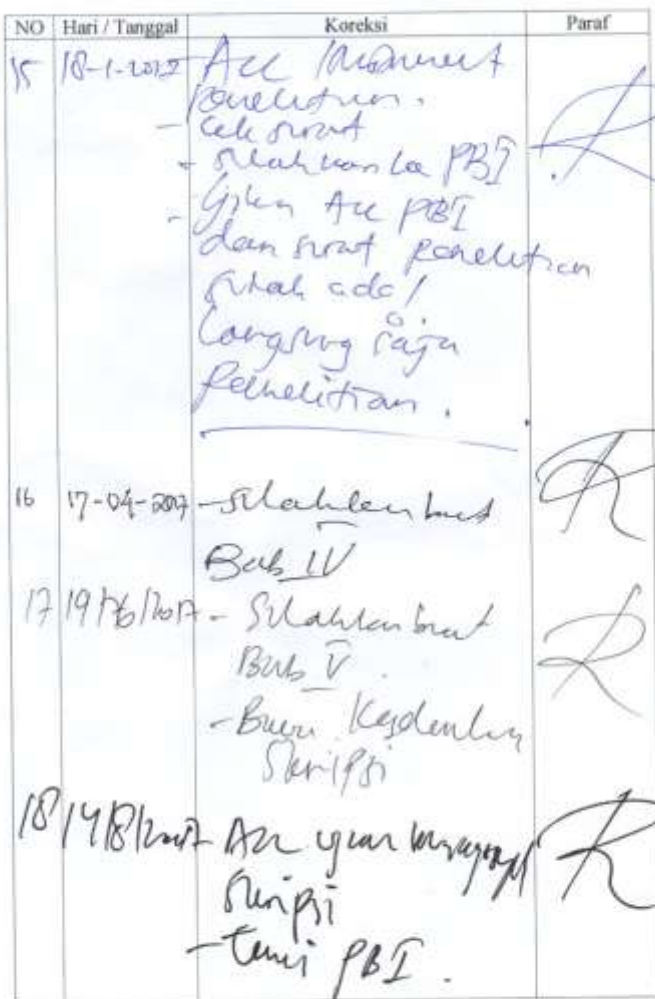 NO Hari / Tanggal Koreksi Paraf
15 18-1-2017 - Acc Instrument
penelitian.
- Cek surat
- silahkan ke PBI
- Jika Acc PBI
dan surat penelitian
sudah ada!
Langsung saja
penelitian.
16 17-04-2017 - silahkan buat
Bab IV
17 19/06/2017 - Silahkan buat
Bab V.
- Bawa Keseluruhan
Skripsi
18 14/8/2017 - Acc ujian
skripsi
- Temui PBI.